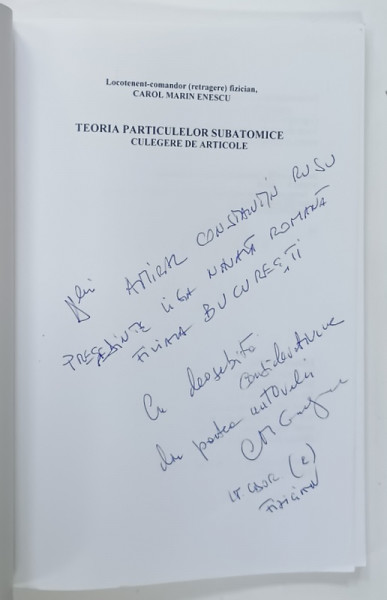 Locotenent-comandor (retragere) fizician,
CAROL MARIN ENESCU
TEORIA PARTICULELOR SUBATOMICE
CULEGERE DE ARTICOLE
Dlui AMIRAL CONSTANTIN RUSU
PREȘEDINTE LIGA NAVALĂ ROMÂNĂ
FILIALA BUCUREȘTI
Cu deosebită
din partea autorului
(R)